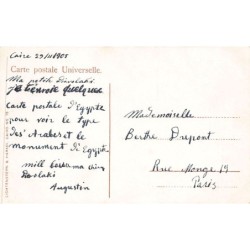 Caire 29/11 1905
Carte postale Universelle.
Ma petite
Je t'envoie quelques
carte postale d'Egypte
pour voir le type
des Arabes et le
monument d'Egypte
mill
Augustin
Mademoiselle
Berthe Drepont
Rue Monge 19
Paris